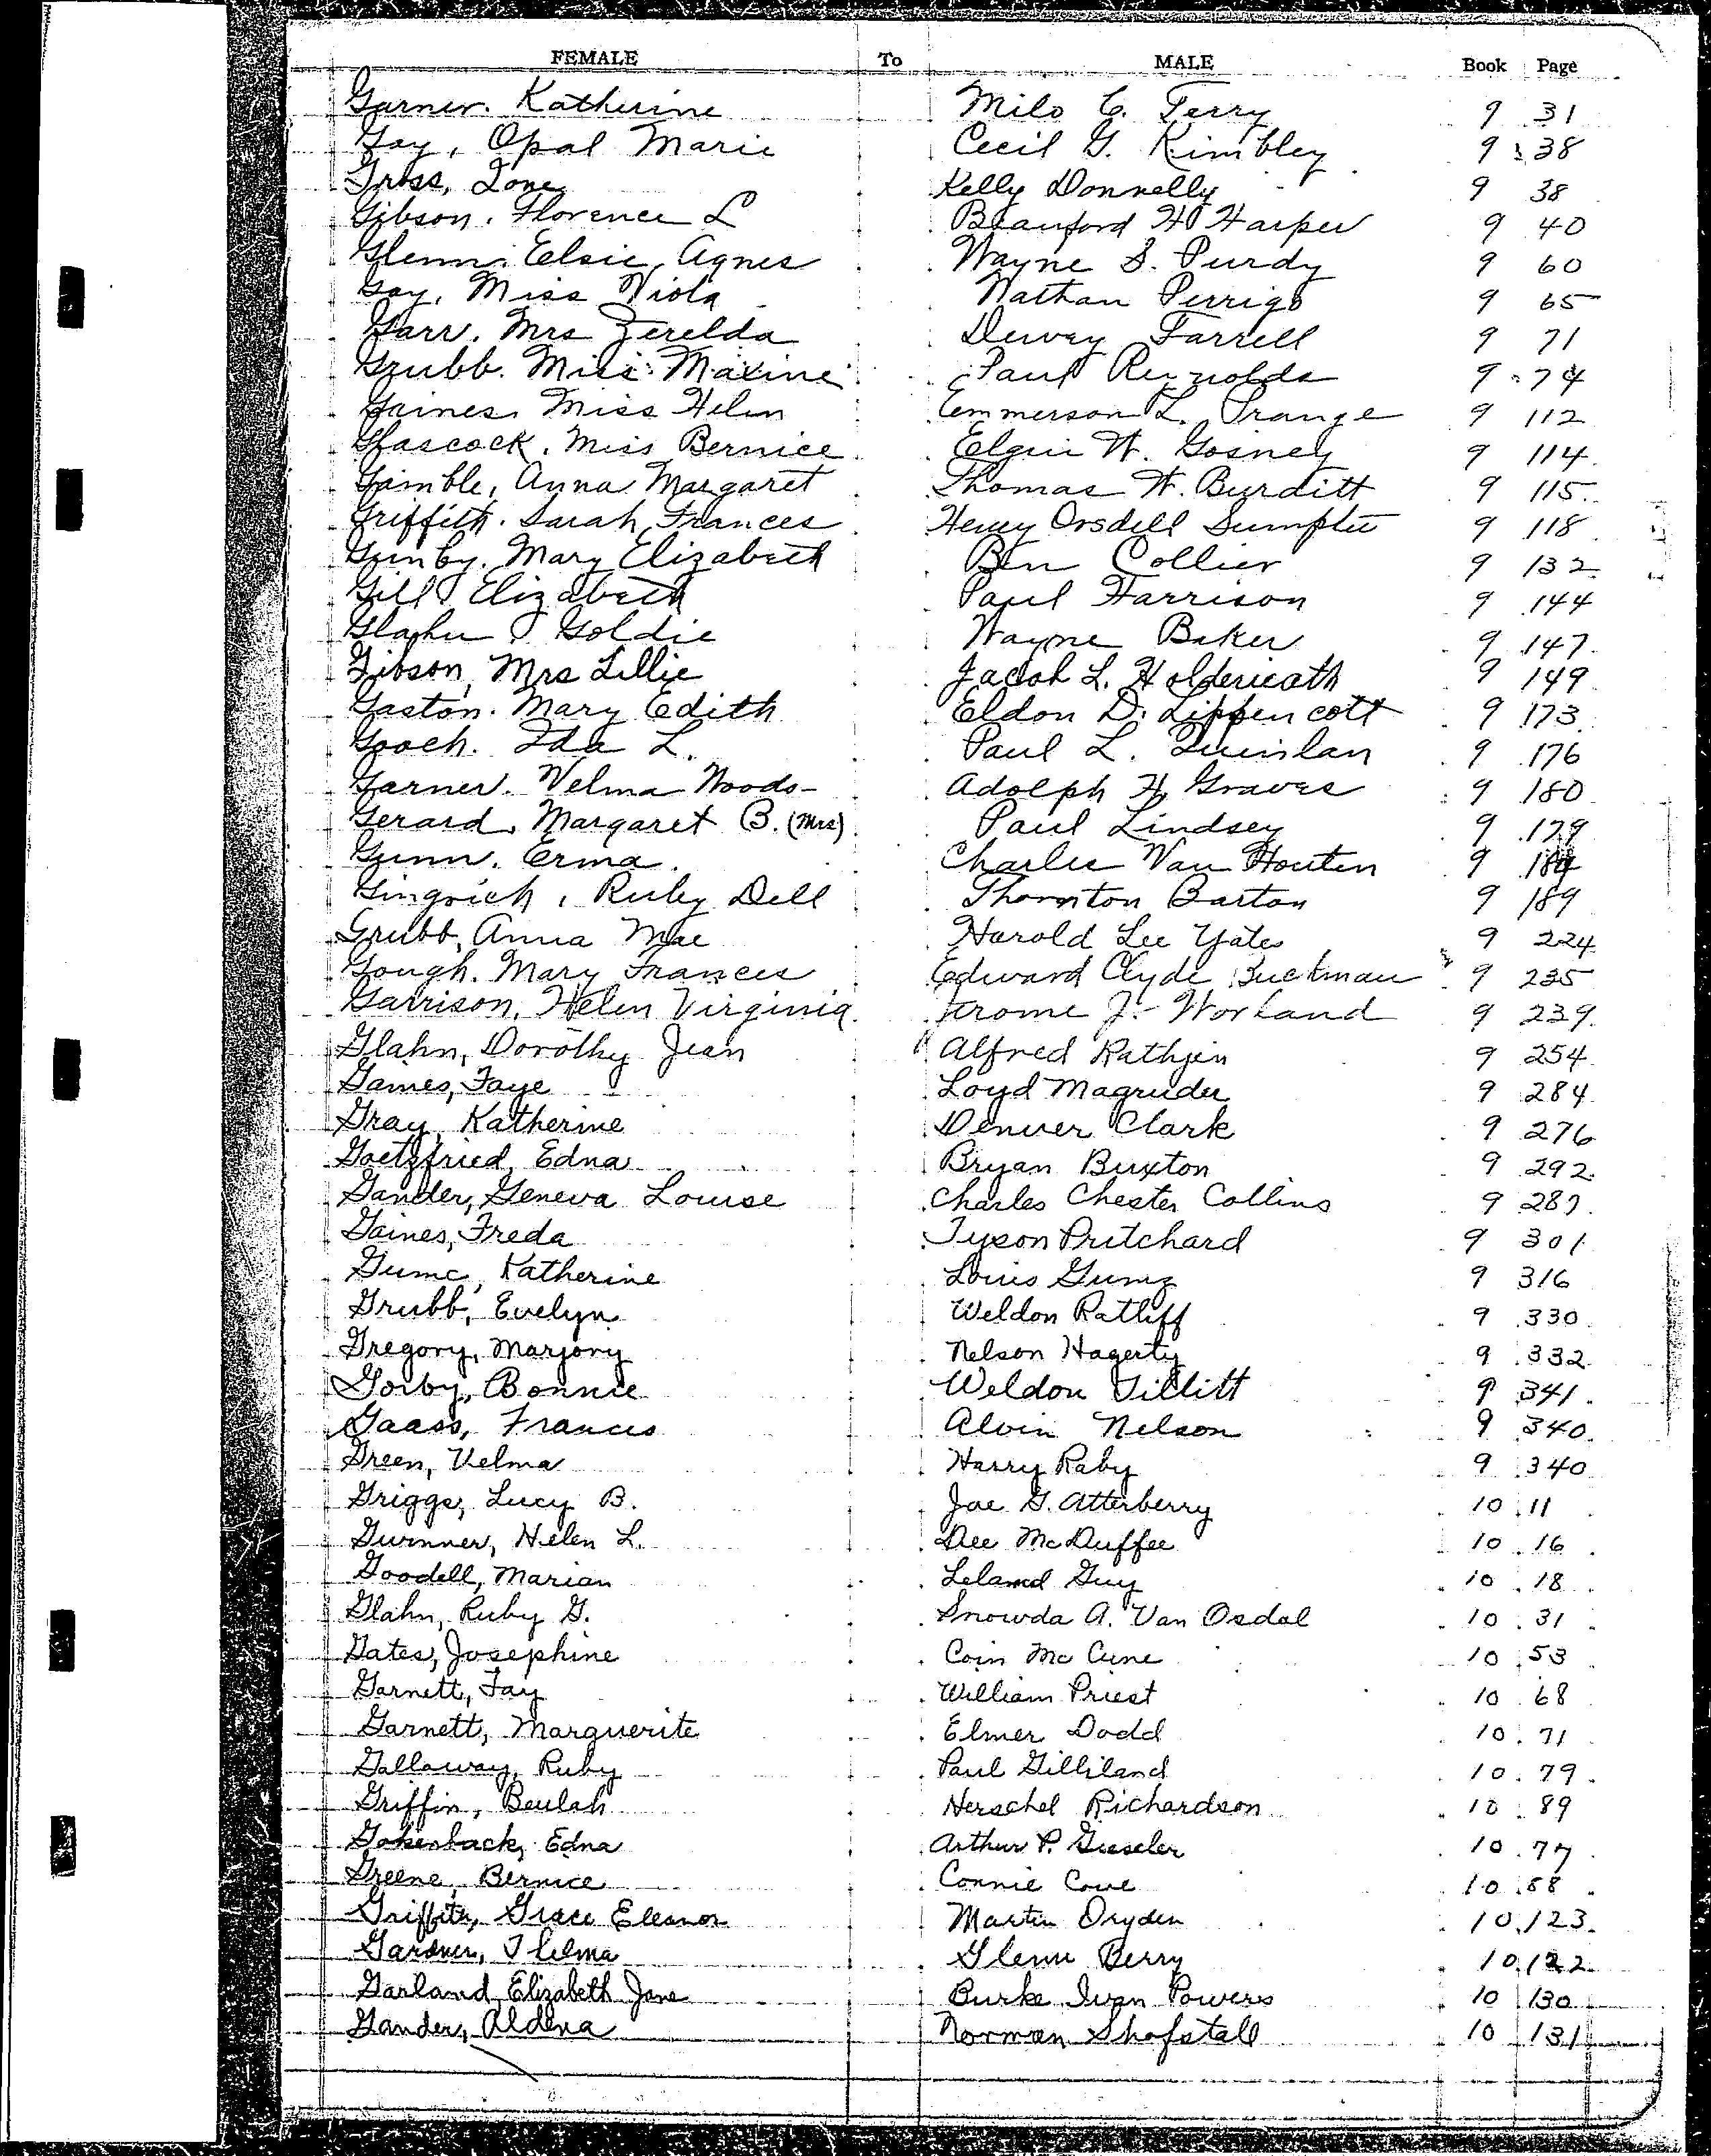 FEMALE To MALE Book Page
Garner. Katherine Milo C. Terry 9 31
Gay, Opal Marie Cecil G. Kimbley 9 38
Gross, Zone Kelly Donnelly 9 38
Gibson. Florence L Beauford H Harper 9 40
Glenn. Elsie Agnes Wayne S. Purdy 9 60
Gay, Miss Viola Nathan Perrigo 9 65
Garr. Mrs Zerelda Dewey Farrell 9 71
Grubb. Miss Maxine Paul Reynolds 9 74
Gaines. Miss Helen Emmerson L. Prange 9 112
Glascock. Miss Bernice Elgin W. Gosney 9 114
Gamble, Anna Margaret Thomas W. Burditt 9 115
Griffith. Sarah Frances Henry Orsdell Sumpter 9 118
Mary Elizabeth Ben Collier 9 132
Gill Elizabeth Paul Harrison 9 144
Goldie Wayne Baker 9 147
Gibson, Mrs Lillie Jacob L. Holderieath 9 149
Gaston. Mary Edith Eldon D. Lippencott 9 173
Gooch. Ida L. Paul L. Quinlan 9 176
Garner. Velma Woods- Adolph H. Graves 9 180
Gerard, Margaret B. (Mrs) Paul Lindsey 9 179
Gunn. Erma Charles Van Houten 9
Gingrich, Ruby Dell Thornton Barton 9 189
Grubb, Anna Mae Harold Lee Yates 9 224
Gough. Mary Frances Edward Clyde Buckman 9 235
Garrison, Helen Virginia Jerome J. Worland 9 239
Glahn, Dorothy Jean Alfred Rathjen 9 254
Gaines, Faye Loyd Magruder 9 284
Gray, Katherine Denver Clark 9 276
Goetzfried, Edna Bryan Buxton 9 292
Gander, Geneva Louise Charles Chester Collins 9 287
Gaines, Freda Tyson Pritchard 9 301
Katherine Louis Gumz 9 316
Grubb, Evelyn Weldon Ratliff 9 330
Gregory, Marjory Nelson Hagerty 9 332
Gorby, Bonnie Weldon Tillitt 9 341
Gaass, Frances Alvin Nelson 9 340
Green, Velma Harry Raby 9 340
Griggs, Lucy B. Joe G. Atterberry 10 11
Helen L. Dee McDuffee 10 16
Goodell, Marian Leland Guy 10 18
Glahn, Ruby G. Snowda A. Van Osdol 10 31
Gates, Josephine Coin McCune 10 53
Garnett, Fay William Priest 10 68
Garnett, Marguerite Elmer Dodd 10 71
Gallaway, Ruby Paul Gilliland 10 79
Griffin, Beulah Herschel Richardson 10 89
Edna Arthur P. Gieseler 10 77
Greene, Bernice Connie Cowe 10
Griffith, Grace Eleanor Martin Dryden 10 123
Gardner, Thelma Glenn Berry 10 122
Garland, Elizabeth Jane Burke Ivan Powers 10 130
Gander, Aldena Norman Shofstall 10 131